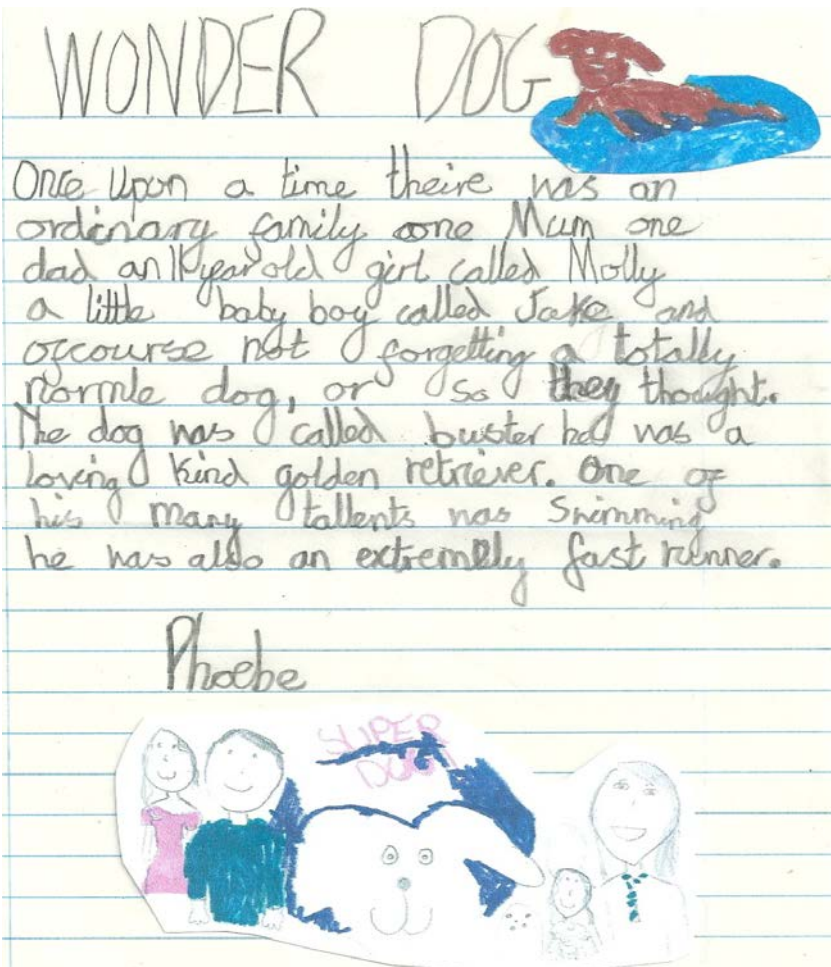 WONDER DOG
Once Upon a time theire was an
ordinary family one Mum one
dad an 11 year old girl called Molly
a little baby boy called Jake and
ofcourse not forgetting a totally
normle dog, or so they thought.
The dog was called buster he was a
loving kind golden retriever. One of
his many tallents was Swimming
he was also an extremely fast runner.
Phoebe
SUPER
DOG